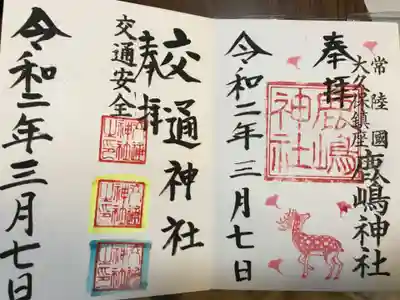 常陸國
大久保鎮座
奉拝
鹿嶋神社
鹿嶋神社
令和二年三月七日
交通神社
奉拝
交通安全
令和二年三月七日